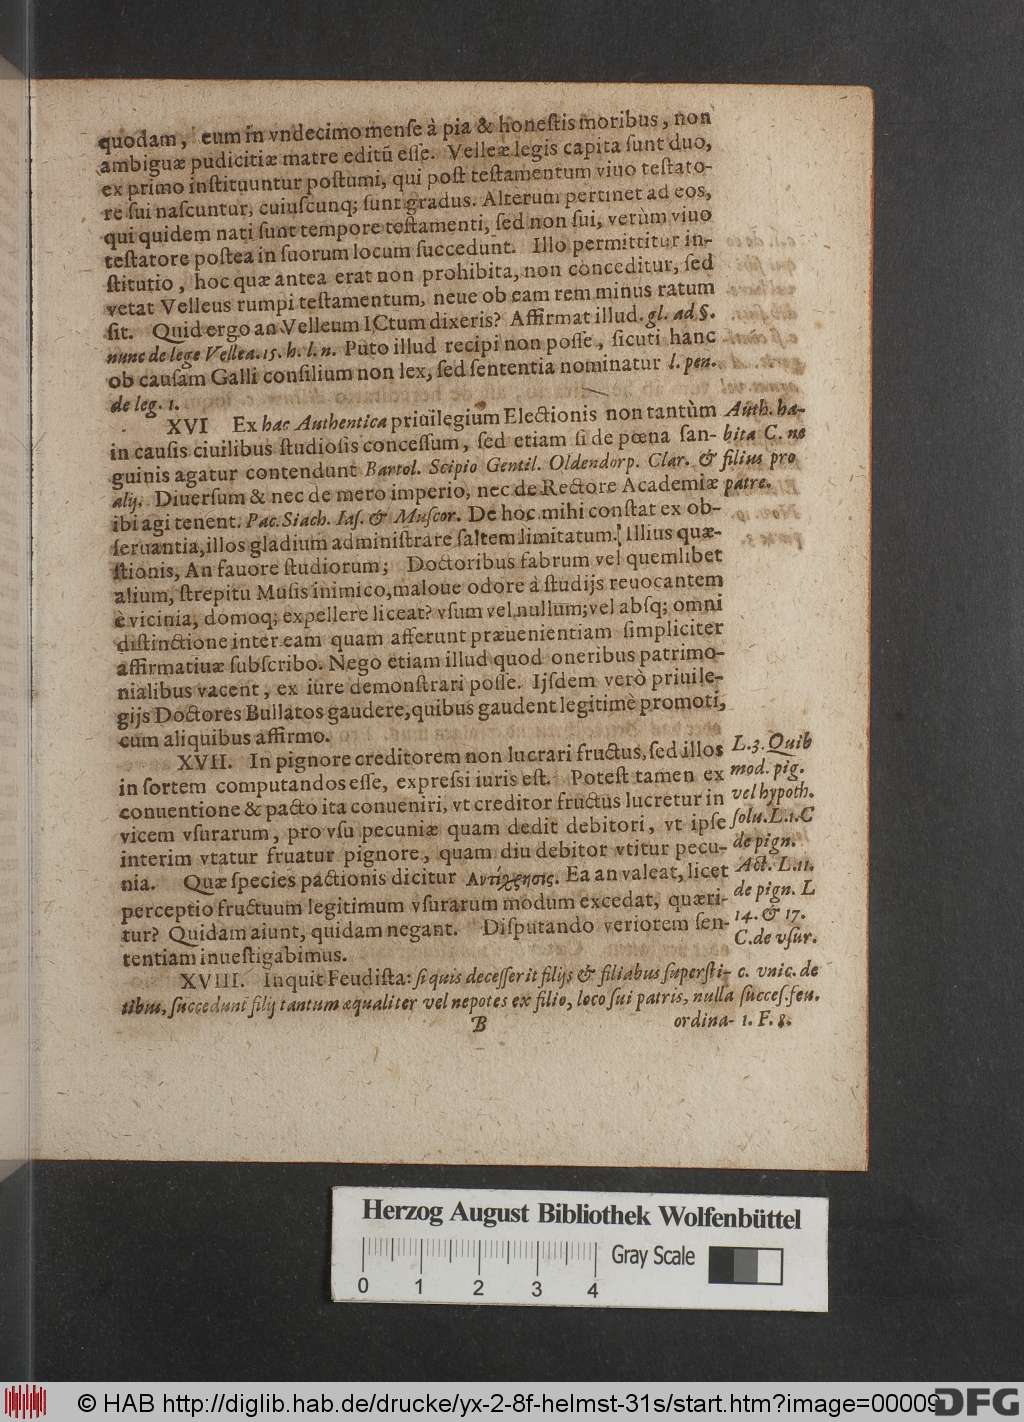 quodam, eum in vndecimo mense à pia & honestis moribus, non
ambiguæ pudicitiæ matre editū esse. Velleæ legis capita sunt duo,
ex primo instituuntur postumi, qui post testamentum viuo testato-
re sui nascuntur, cuiuscunq; sunt gradus. Alterum pertinet ad eos,
qui quidem nati sunt tempore testamenti, sed non sui, verùm viuo
testatore postea in suorum locum succedunt. Illo permittitur in-
stitutio, hoc quæ antea erat non prohibita, non conceditur, sed
vetat Velleus rumpi testamentum, neue ob eam rem minus ratum
sit. Quid ergo an Velleum ICtum dixeris? Affirmat illud. gl. ad §.
nunc de lege Vellea. 15. h. l. n. Puto illud recipi non posse, sicuti hanc
ob causam Galli consilium non lex, sed sententia nominatur l. pen.
de leg. 1.
XVI Ex hac Authentica priuilegium Electionis non tantùm
in causis ciuilibus studiosis concessum, sed etiam si de pœna san-
guinis agatur contendunt Bartol. Scipio Gentil. Oldendorp. Clar. &
alij. Diuersum & nec de mero imperio, nec de Rectore Academiæ
ibi agi tenent. Pac. Siach. Ias. & Muscor. De hoc mihi constat ex ob-
seruantia, illos gladium administrare saltem limitatum. Illius quæ-
stionis, An fauore studiorum; Doctoribus fabrum vel quemlibet
alium, strepitu Musis inimico, maloue odore à studijs reuocantem
è vicinia, domoq; expellere liceat? vsum vel nullum; vel absq; omni
distinctione inter eam quam afferunt præuenientiam simpliciter
affirmatiuæ subscribo. Nego etiam illud quod oneribus patrimo-
nialibus vacent, ex iure demonstrari posse. Ijsdem verò priuile-
gijs Doctores Bullatos gaudere, quibus gaudent legitimè promoti,
cum aliquibus affirmo.
Auth. ha-
bita C. ne
filius pro
patre.
XVII. In pignore creditorem non lucrari fructus, sed illos
in sortem computandos esse, expressi iuris est. Potest tamen ex
conuentione & pacto ita conueniri, vt creditor fructus lucretur in
vicem vsurarum, pro vsu pecuniæ quam dedit debitori, vt ipse
interim vtatur fruatur pignore, quam diu debitor vtitur pecu-
nia. Quæ species pactionis dicitur Αντίχρησις. Ea an valeat, licet
perceptio fructuum legitimum vsurarum modum excedat, quæri-
tur? Quidam aiunt, quidam negant. Disputando veriotem sen-
tentiam inuestigabimus.
L. 3. Quib
mod. pig.
vel hypoth.
solu. L. 1. C
de pign.
Act. L. 11.
de pign. L
14. & 17.
C. de vsur.
XVIII. Inquit Feudista: si quis decesserit filijs & filiabus supersti-
tibus, succedunt filij tantum æqualiter vel nepotes ex filio, loco sui patris, nulla
c. vnic. de
succes. feu.
1. F. 8.
B ordina-
Herzog August Bibliothek Wolfenbüttel
Gray Scale
0 1 2 3 4
© HAB http://diglib.hab.de/drucke/yx-2-8f-helmst-31s/start.htm?image=00009
DFG